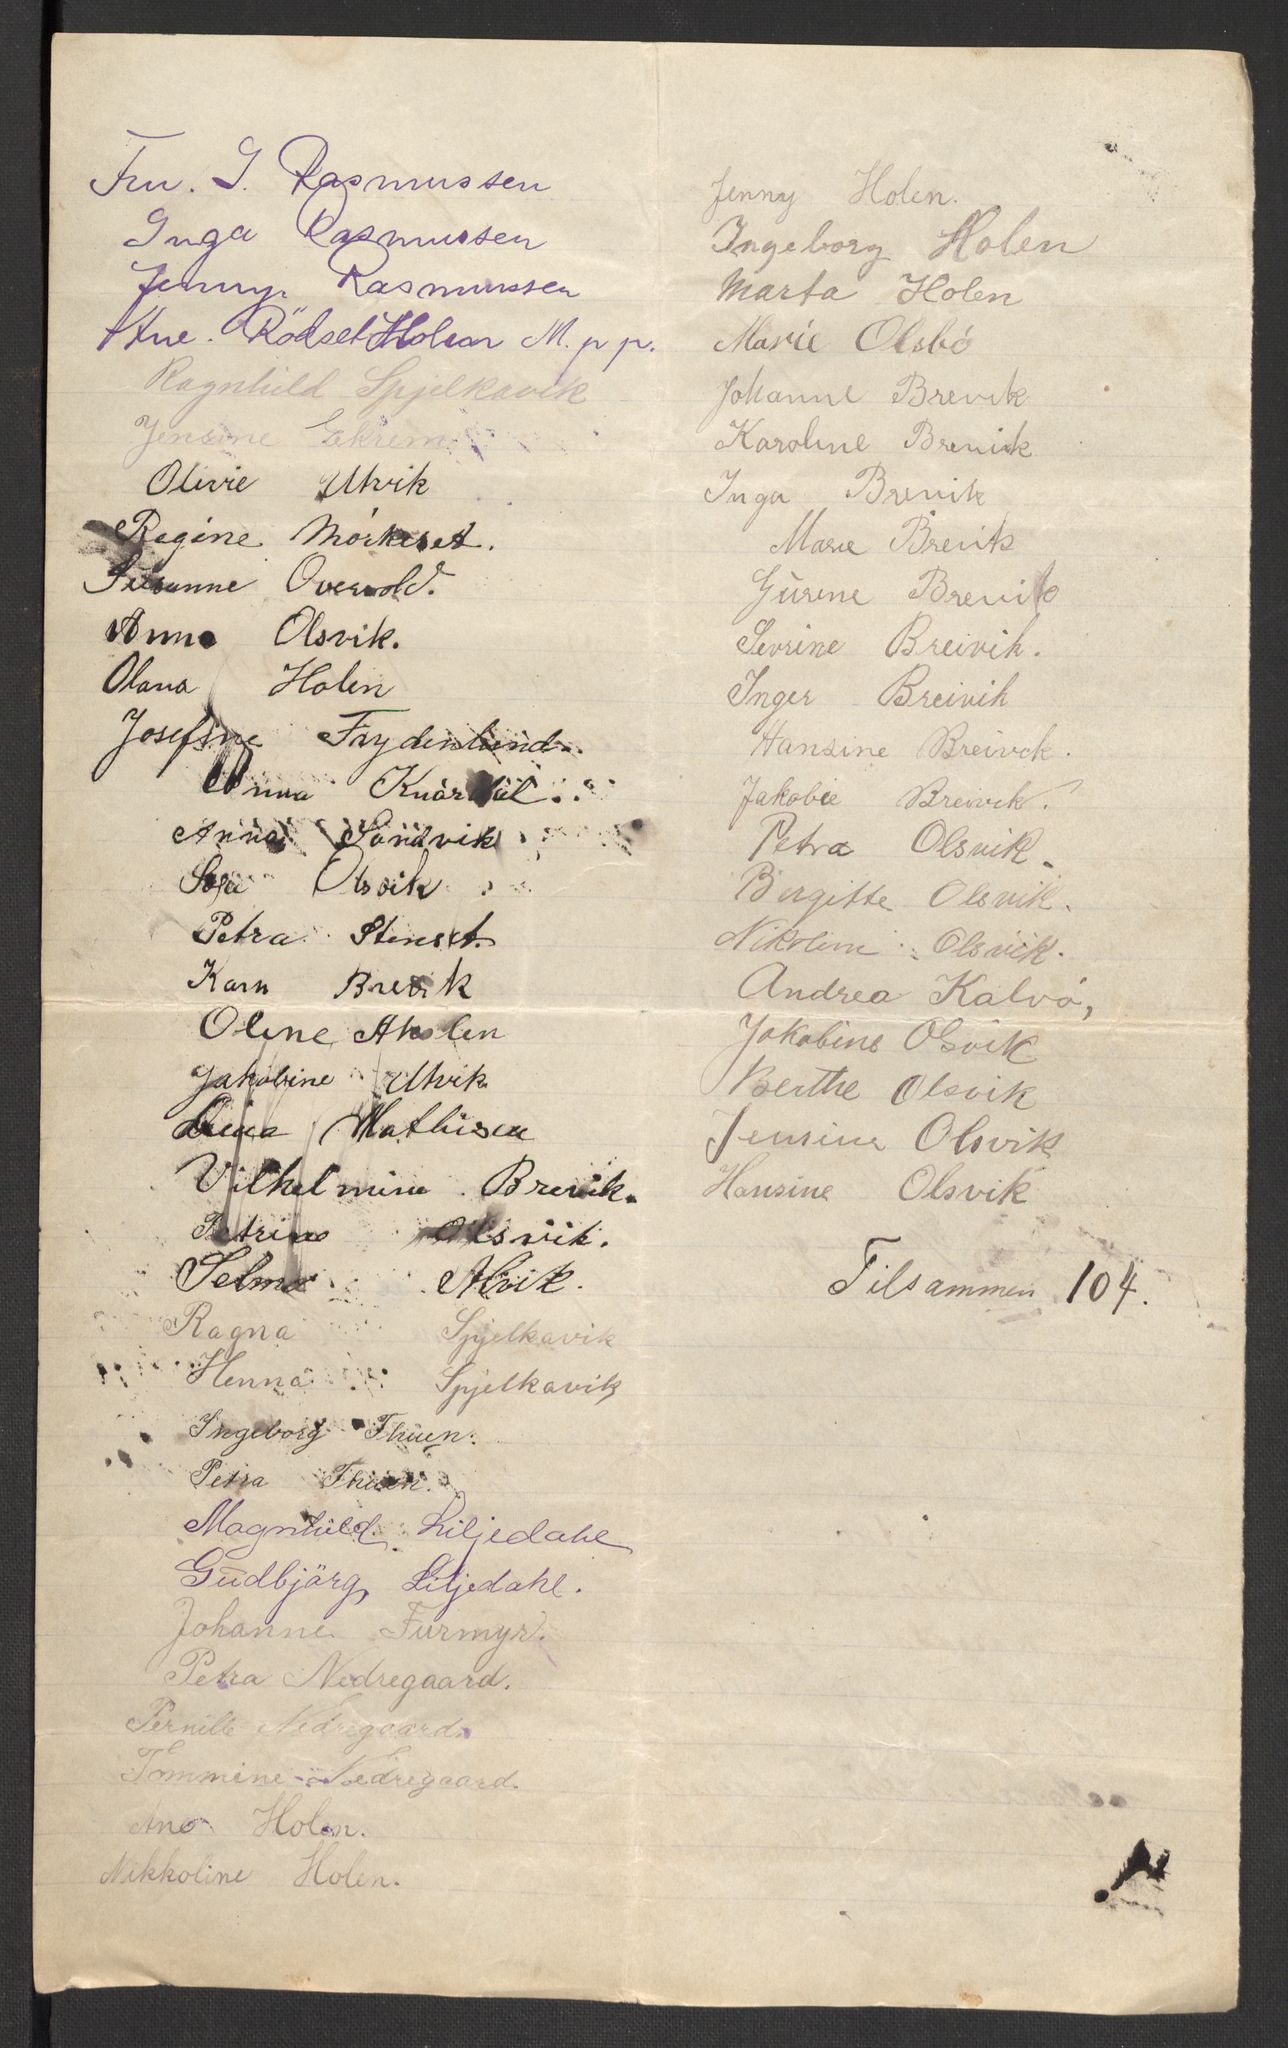 Fru. I. Rasmussen
Inga Rasmussen
Jenny Rasmussen
Ane. Rödset Holen M. p p.
Ragnhild Spjelkavik
Jensine Ekrem
Olivie Ulvik
Regine Mörkeset.
Susanne Overvold.
Anna Olsvik.
Olava Holen
Josefine Frydenlund.
Anna Knardal.
Anna Sandvik
Olsvik
Petra Stenset.
Karn Brevik
Oline Akselen
Jakobine Ulvik
Lina Mathisen
Vilhelmine Brevik.
Petrine Olsvik.
Selma Alvik.
Ragna Spjelkavik
Henna Spjelkavik
Ingeborg Thuen.
Petra Thuen.
Magnhild Liljedahl
Gudbjörg Liljedahl.
Johanne Furmyr.
Petra Nedregaard.
Pernille Nedregaard.
Tommine Nedregaard.
Ane Holen.
Nikkoline Holen.
Jenny Holen.
Ingeborg Holen
Marta Holen
Marie Olsbö
Johanne Brevik
Karoline Brevik
Inga Brevik
Marie Brevik
Gurine Brevik
Sevrine Breivik.
Inger Breivik
Hansine Breivck.
Jakobie Breivik.
Petra Olsvik.
Bergitte Olsvik.
Nikoline Olsvik.
Andrea Kalvö,
Jakobine Olsvik
Berthe Olsvik
Jensine Olsvik
Hansine Olsvik
Tilsammen 104.